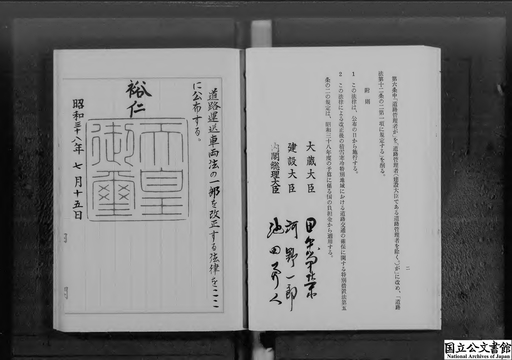 第六条中「道路管理者が」を「道路管理者(建設大臣である道路管理者を除く。)が」に改め、「道路
法第十二条の二第一項に規定する」を削る。
附則
1 この法律は、公布の日から施行する。
2 この法律による改正後の積雪寒冷特別地域における道路交通の確保に関する特別措置法第五
条の二の規定は、昭和三十八年度の予算に係る国の負担金から適用する。
大蔵大臣 田中角榮
建設大臣 河野一郎
内閣総理大臣 池田勇人
二
道路運送車両法の一部を改正する法律をここ
に公布する。
裕仁
天皇
御璽
昭和三十八年七月十五日
国立公文書館
National Archives of Japan